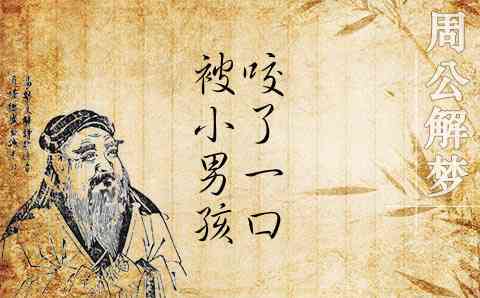 周公解梦
被小男孩
咬了一口